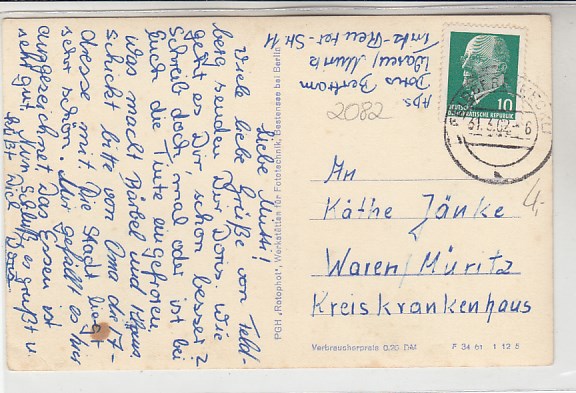 Abs.
Doris Bertram
Waren/Müritz
Fritz-Reuter-Str. 14
Liebe Mutti!
Viele liebe Grüße von Feld-
berg senden Dir Doris. Wie
geht es Dir, schon besser?
Schreib doch mal oder ist bei
Euch die Tinte eingefroren
was macht Bärbel und Klaus
schickt bitte von Oma die A-
dresse mit. Die Stadt liegt
sehr schön. Nur gefällt es hier
ausgezeichnet. Das Essen ist
sehr gut. Nun Schluß es grüßt u.
küßt Dich Doris
PGH „Rotophot", Werkstätten für Fototechnik, Bestensee bei Berlin
2082
10
DEUTSCHE
DEMOKRATISCHE REPUBLIK
31.3.62-6
4,-
An
Käthe Jänke
Waren/Müritz
Kreiskrankenhaus
Verbraucherpreis 0,20 DM
F 34 61 1 12 5